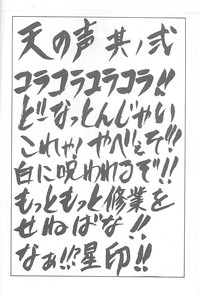 天の声 其ノ弐
コラコラコラコラ!!
どーなっとんじゃい
これゃ！やべぇぞ!!
白に呪われるぞ!!
もっともっと修業を
せねばな!!
なぁ!!?星印!!